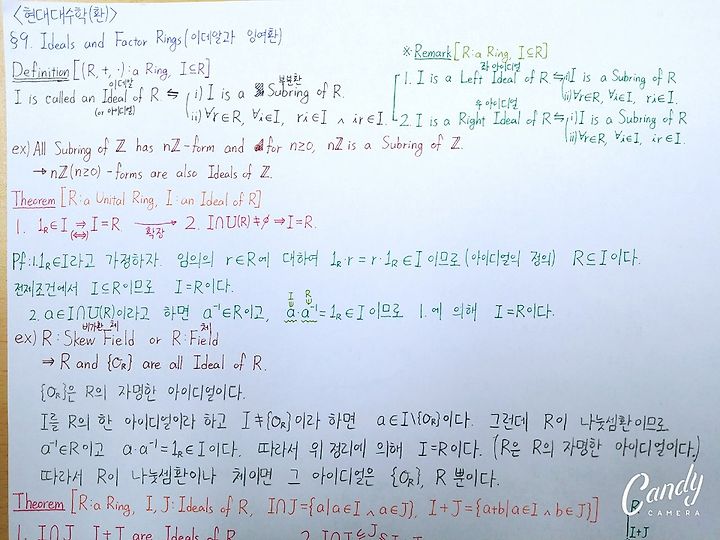 <현대대수학(환)>
§9. Ideals and Factor Rings (이데알과 잉여환)
Definition [(R, +, ·) : a Ring, I⊆R]
이데알
부분환
I is called an Ideal of R. ⇆ i) I is a Subring of R.
(or 아이디얼)
ii) ∀r∈R, ∀i∈I, ri∈I ∧ ir∈I.
※ Remark [R : a Ring, I⊆R]
좌 아이디얼
1. I is a Left Ideal of R ⇆ i) I is a Subring of R
ii) ∀r∈R, ∀i∈I, ri∈I.
우 아이디얼
2. I is a Right Ideal of R ⇆ i) I is a Subring of R
ii) ∀r∈R, ∀i∈I, ir∈I.
ex) All Subring of ℤ has nℤ-form and for n≥0, nℤ is a Subring of ℤ.
→ nℤ(n≥0)-forms are also Ideals of ℤ.
Theorem [R : a Unital Ring, I : an Ideal of R]
1. 1_R∈I ⇒ I=R. → 2. I∩U(R)≠∅ ⇒ I=R.
(⇔) 확장
Pf : 1. 1_R∈I라고 가정하자. 임의의 r∈R에 대하여 1_R·r = r·1_R∈I 이므로 (아이디얼의 정의) R⊆I 이다.
전제조건에서 I⊆R이므로 I=R이다.
I R
2. a∈I∩U(R)이라고 하면 a⁻¹∈R이고, a·a⁻¹=1_R∈I 이므로 1.에 의해 I=R이다.
비가환 체 체
ex) R : Skew Field or R : Field
⇒ R and {0_R} are all Ideal of R.
{0_R}은 R의 자명한 아이디얼이다.
I를 R의 한 아이디얼이라 하고 I≠{0_R}이라 하면 a∈I\{0_R}이다. 그런데 R이 나눗셈환이므로
a⁻¹∈R이고 a·a⁻¹=1_R∈I 이다. 따라서 위 정리에 의해 I=R이다. (R은 R의 자명한 아이디얼이다.)
따라서 R이 나눗셈환이나 체이면 그 아이디얼은 {0_R}, R 뿐이다.
Theorem [R : a Ring, I, J : Ideals of R, I∩J={a|a∈I ∧ a∈J}, I+J={a+b|a∈I ∧ b∈J}]
1. I∩J, I+J are Ideals of R. 2. I∩J⊆J
R
I+J
Candy
CAMERA